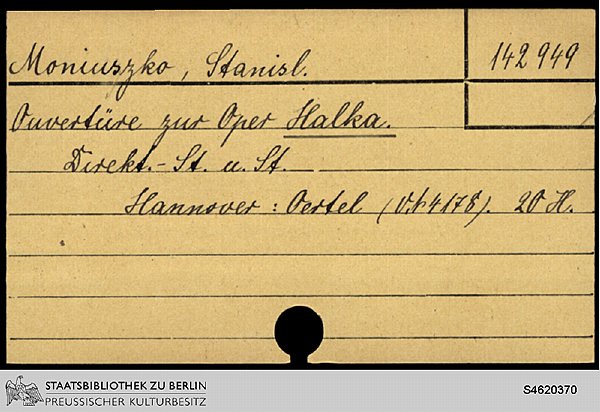 Moniuszko, Stanisl.
142 949
Ouvertüre zur Oper Halka.
Direkt.-St. u. St.
Hannover: Oertel (V. 4178). 20 H.
STAATSBIBLIOTHEK ZU BERLIN
PREUSSISCHER KULTURBESITZ
S4620370